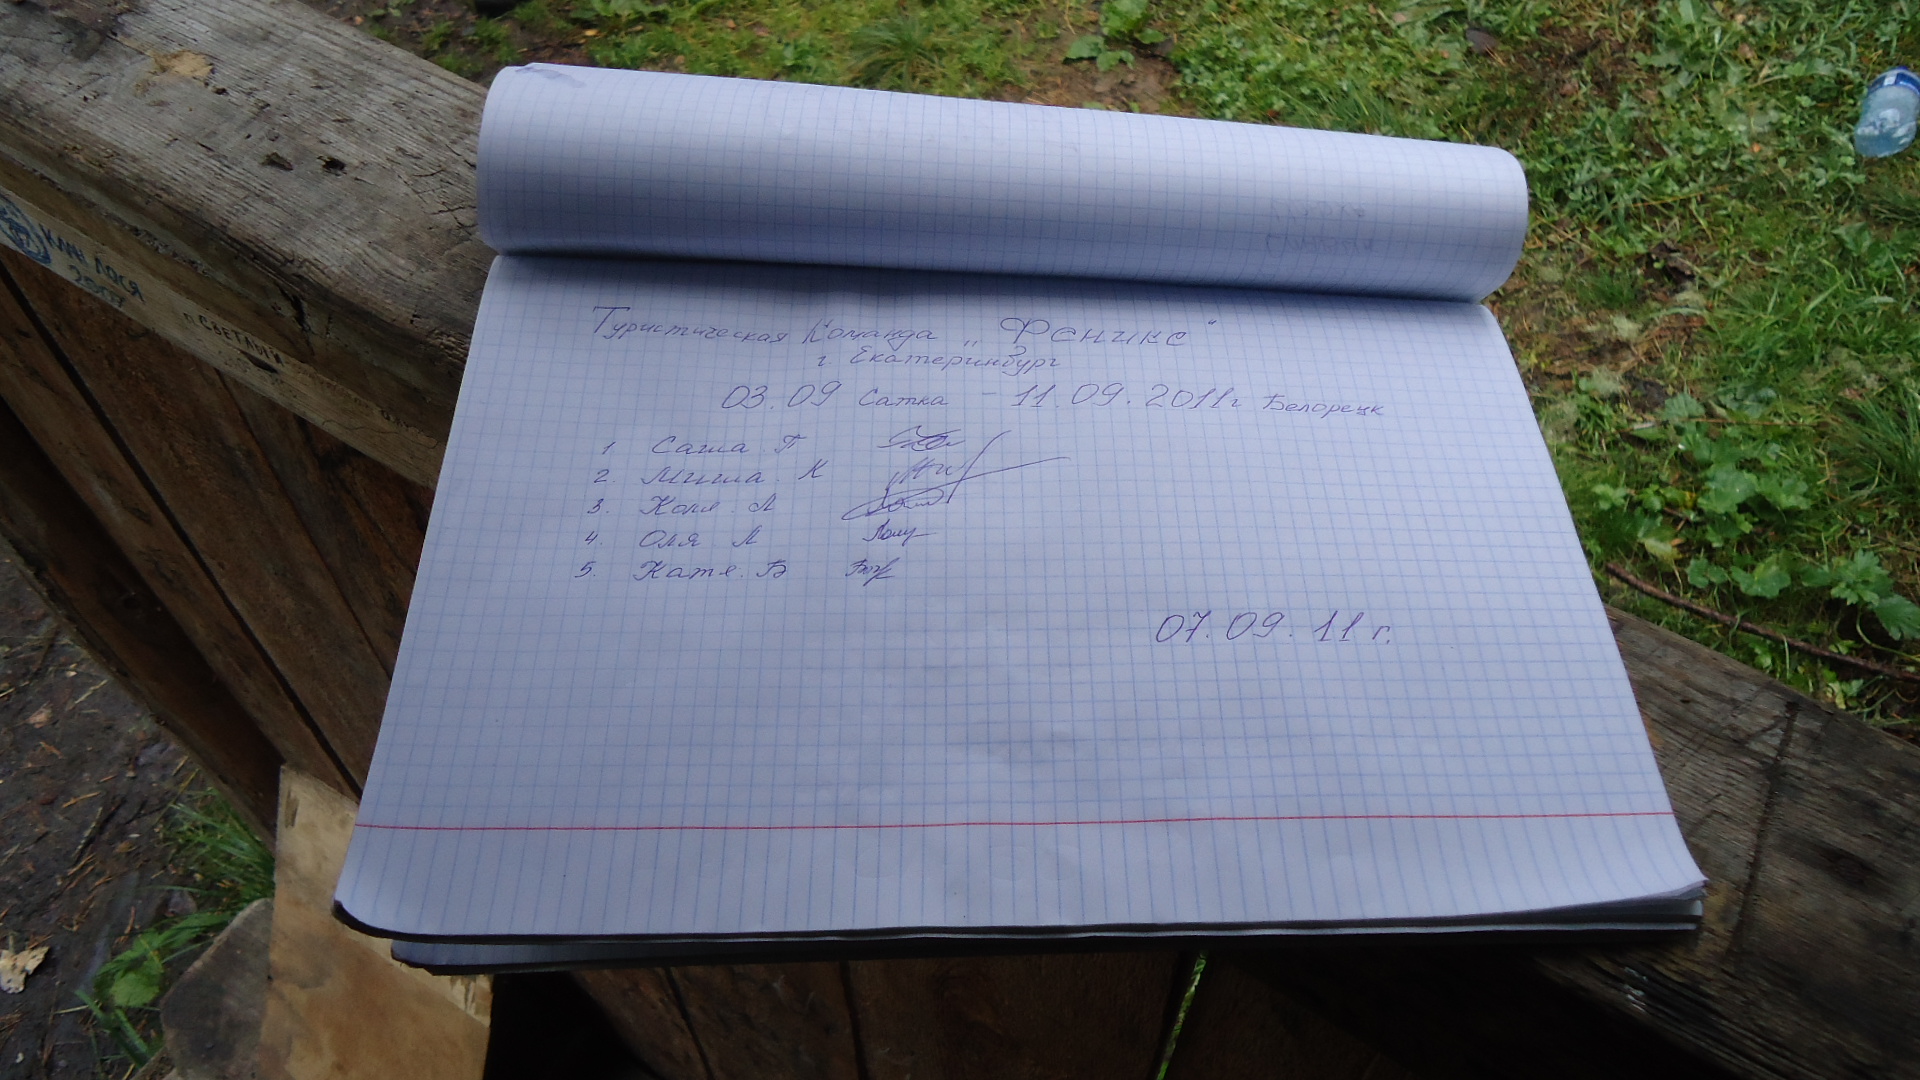 Туристическая Команда „Феникс“
г. Екатеринбург
03.09 Сатка - 11.09.2011г Белорецк
1 Саша П
2. Миша. К
3. Коля. Л
4. Оля Л
5. Катя. Б
07.09.11 г.
КЛАН ЛОСЯ
2007
п. СВЕТЛЫЙ